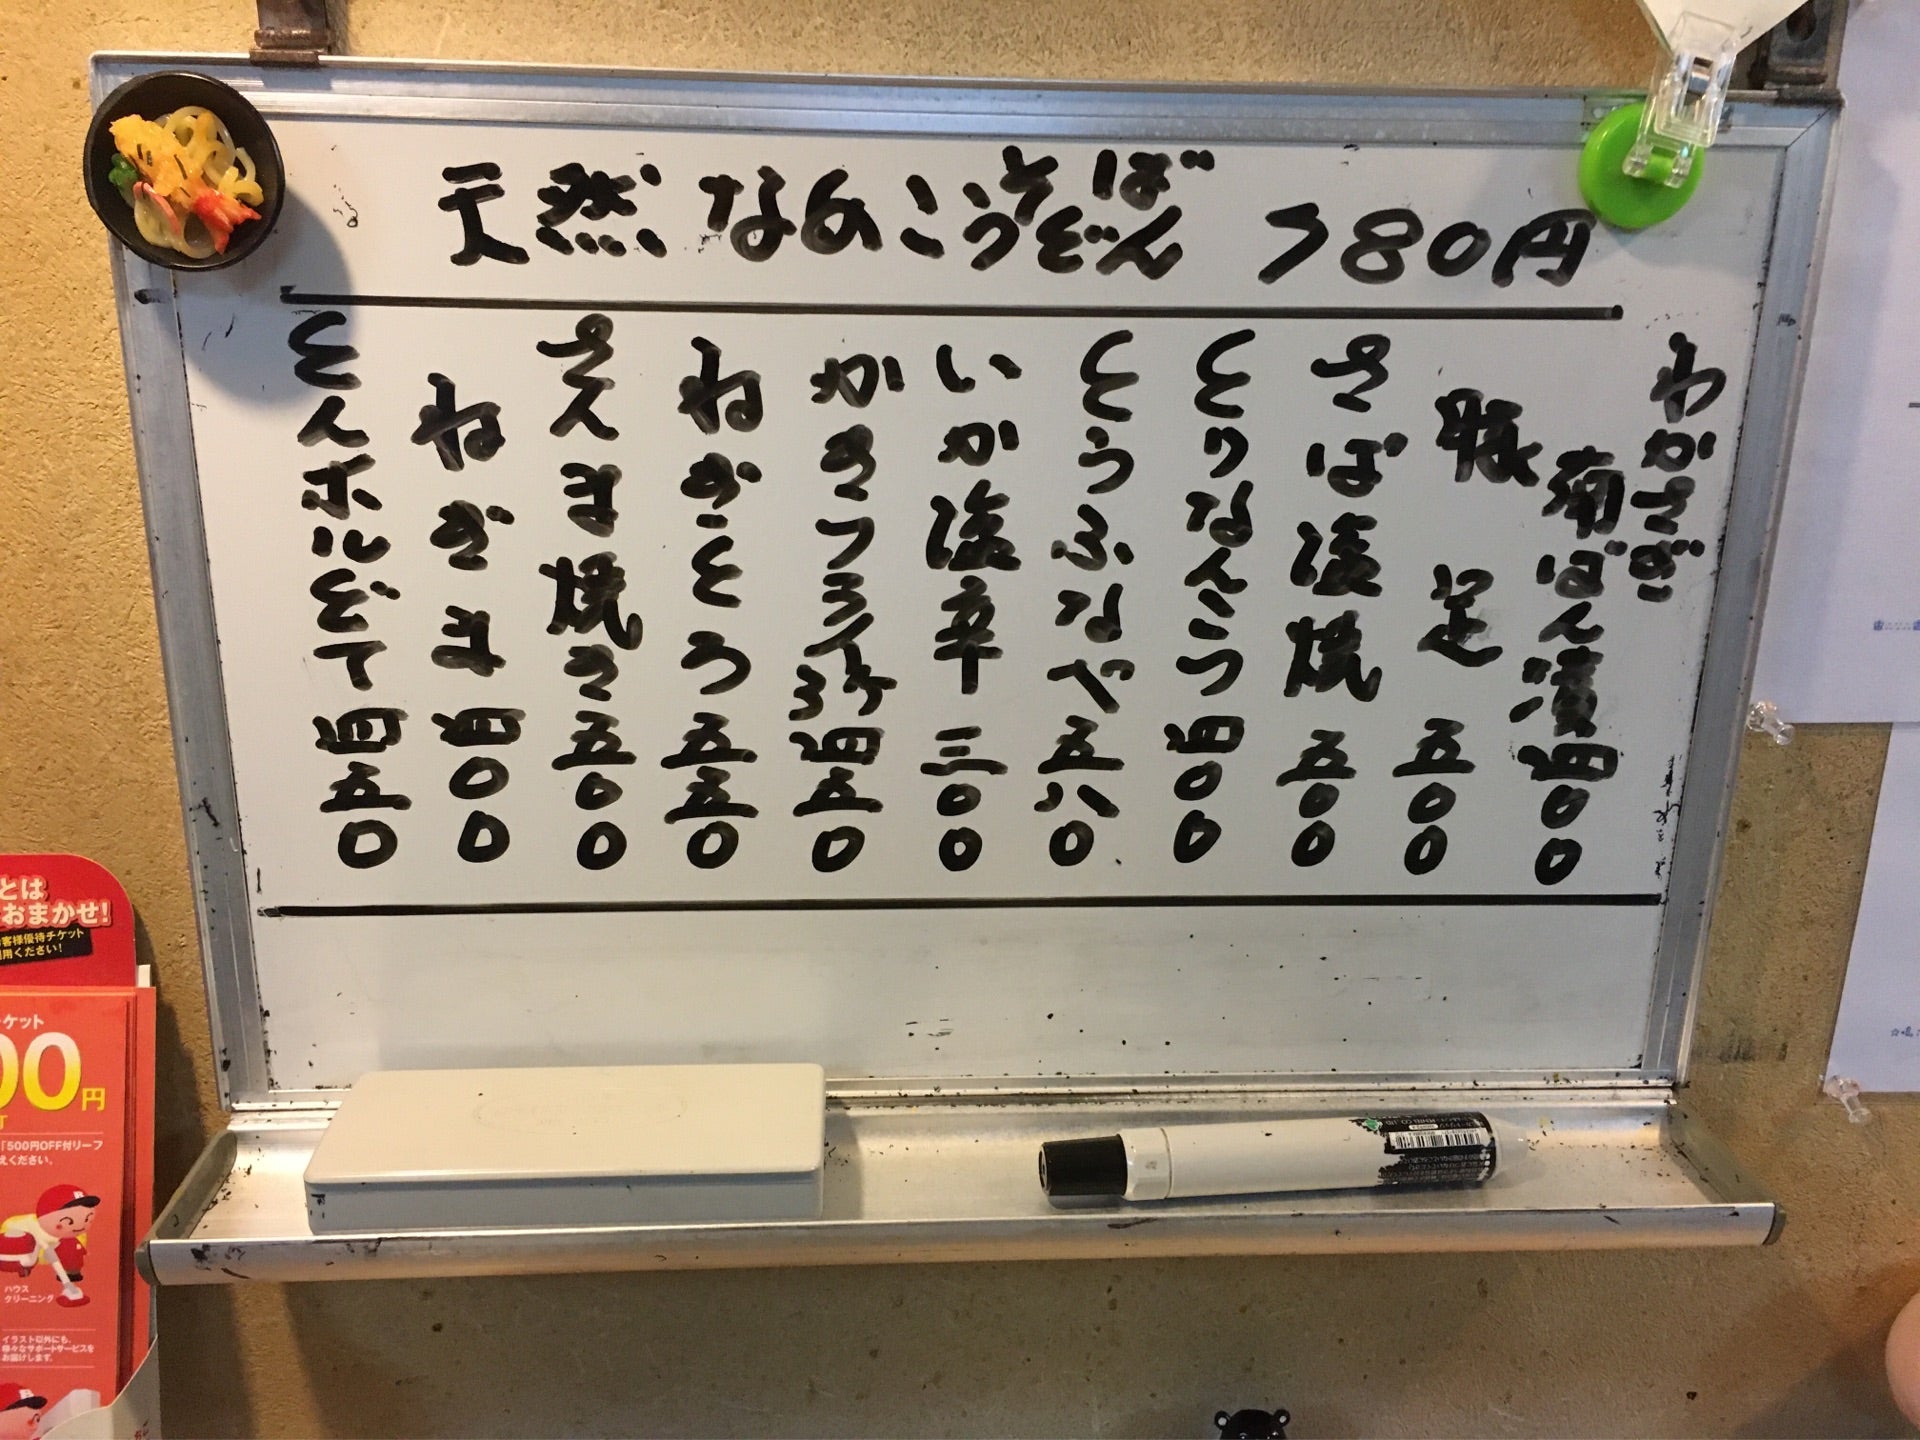 天然なめこそばうどん 780円
わかさぎ南ばん漬四〇〇
豚足 五〇〇
さば塩焼 五〇〇
とりなんこつ 四〇〇
とうふなべ 五八〇
いか塩辛 三〇〇
かきフライ 四五〇
ねぎとろ 五五〇
さんま焼き 五〇〇
ねぎま 四〇〇
とんホルどて 四五〇
とは
おまかせ!
客様優待チケット
用ください!
ケット
00円
「500円OFF付リーフ
えください。
ハウス
クリーニング
イラスト以外にも、
様々なサポートサービスを
お届けします。